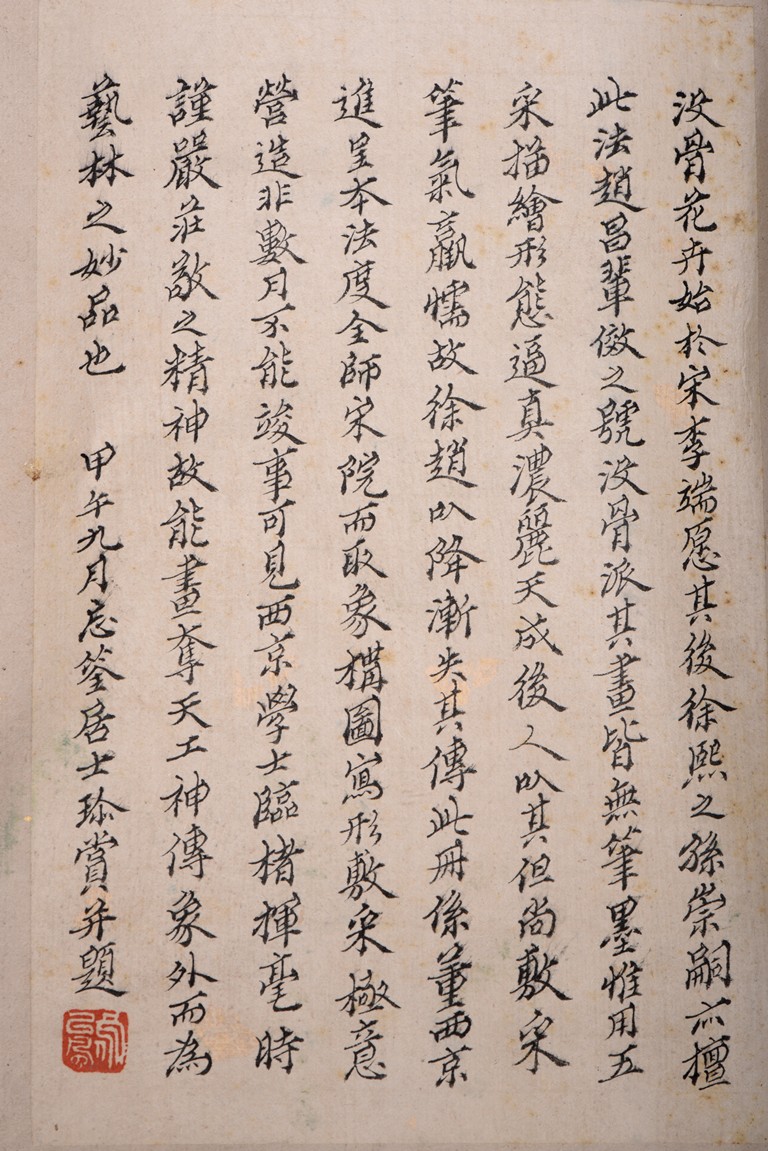 没骨花卉始於宋李端愿其後徐熙之孫崇嗣亦擅
此法趙昌輩倣之號没骨派其畫皆無筆墨惟用五
采描繪形態逼真濃麗天成後人以其但尚敷采
筆氣羸懦故徐趙以降漸失其傳此冊係董西京
進呈本法度全師宋院而取象構圖寫形敷采極意
營造非數月不能竣事可見西京學士臨楮揮毫時
謹嚴莊敬之精神故能畫奪天工神傳象外而為
藝林之妙品也 甲午九月忘筌居士珍賞并題